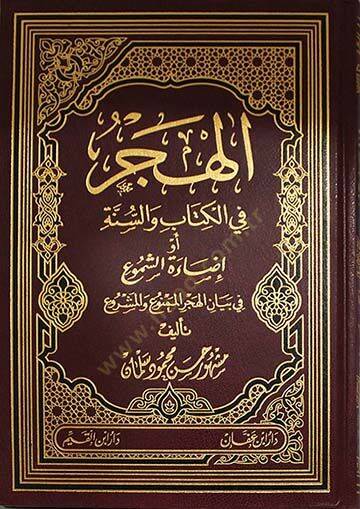 الهَجْرُ
فِي الكِتَابِ وَالسُّنَّةِ
أو
إضاءة الشموع
في بيان الهجر الممنوع والمشروع
تأليف
مشهور حسن محمود سلمان
دار ابن عفان
دار ابن القيم